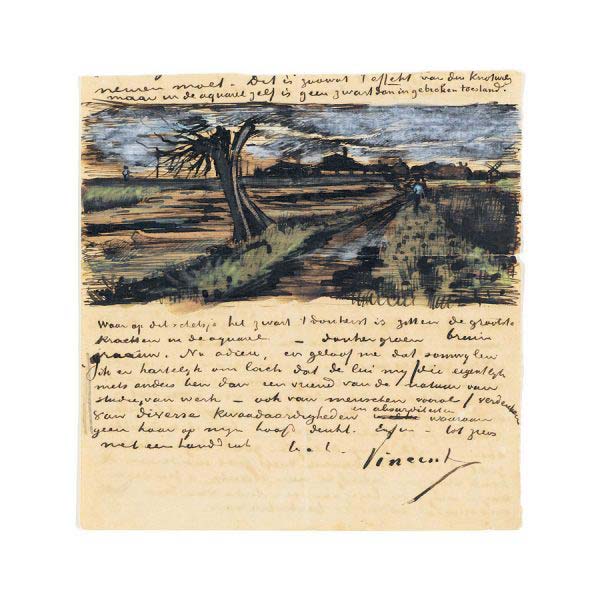 nemen moet. Dit is zoowat 't effekt van den Knotwilg
maar in de aquarel zelf is geen zwart dan in gebroken toestand.
Waar op dit schetsje het zwart 't donkerst is zitten de grootste
krachten in de aquarel – donkergroen bruin
graauw. Nu adieu, en geloof me dat somwijlen
ik er hartelijk om lach dat de lui my / die eigentlyk
niets anders ben dan een vriend van de natuur van
studie, van werk – ook van menschen vooral / verdenken
van diverse kwaadaardigheden en absurditeiten waaraan
geen haar op myn hoofd denkt. Enfin – tot ziens
met een handdruk t. à t. Vincent